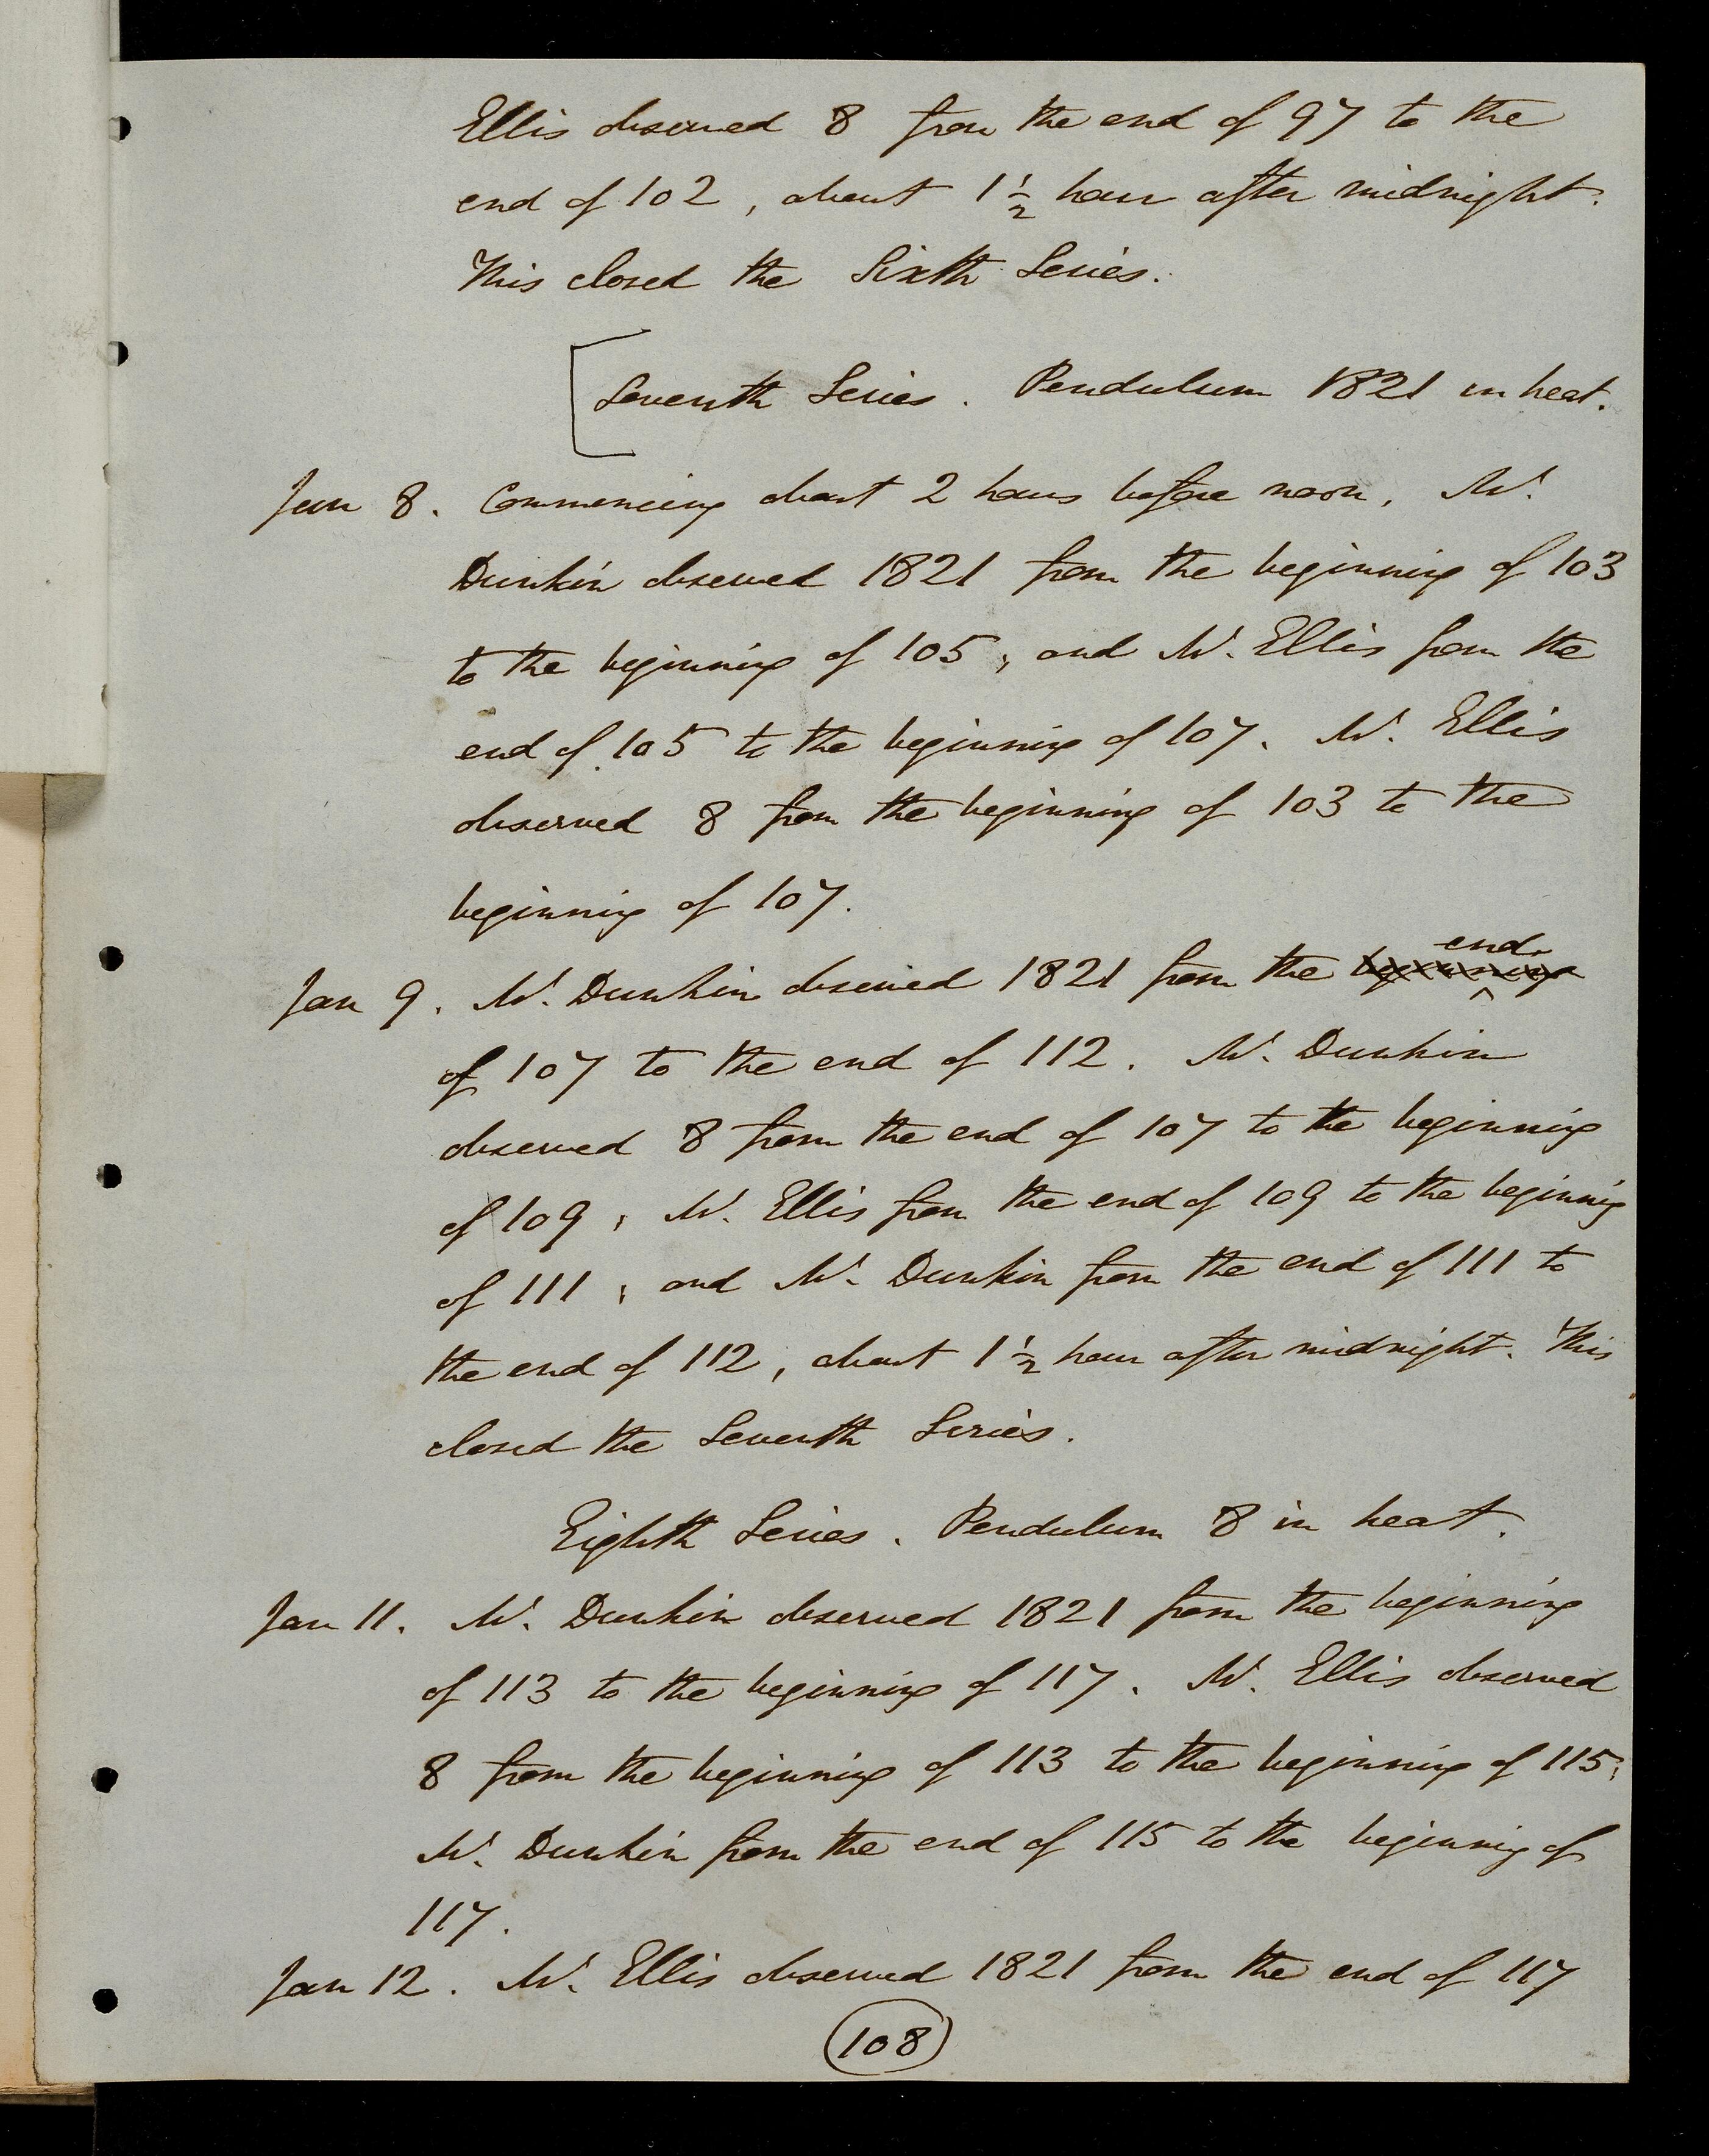 Ellis observed 8 from the end of 97 to the
end of 102, about 1 1/2 hour after midnight.
This closed the Sixth Series.
[Seventh Series. Pendulum 1821 in heat.
Jan 8. Commencing about 2 hours before noon, Mr.
Dunkin observed 1821 from the beginning of 103
to the beginning of 105; and Mr. Ellis from the
end of 105 to the beginning of 107. Mr. Ellis
observed 8 from the beginning of 103 to the
beginning of 107.
end
Jan 9. Mr. Dunkin observed 1821 from the beginning
of 107 to the end of 112. Mr. Dunkin
observed 8 from the end of 107 to the beginning
of 109; Mr. Ellis from the end of 109 to the beginning
of 111; and Mr. Dunkin from the end of 111 to
the end of 112, about 1 1/2 hour after midnight. This
closed the Seventh Series.
Eighth Series. Pendulum 8 in heat.
Jan 11. Mr. Dunkin observed 1821 from the beginning
of 113 to the beginning of 117. Mr. Ellis observed
8 from the beginning of 113 to the beginning of 115;
Mr. Dunkin from the end of 115 to the beginning of
117.
Jan 12. Mr. Ellis observed 1821 from the end of 117
108